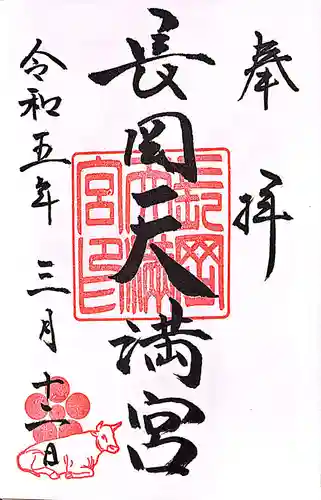 奉拝
長岡天満宮
令和五年三月十二日
長岡天満宮印